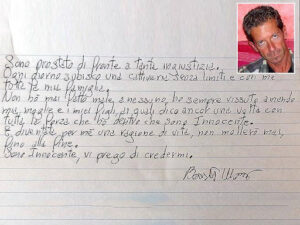 Sono prostato di fronte a tanta ingiustizia.
Ogni giorno subisco una cattiveria senza limiti e con me
tutta la mia famiglia.
Non ho mai fatto male a nessuno, ho sempre vissuto amando
mia moglie e i miei figli, ai quali dico ancor una volta con
tutta la forza che ho dentro che sono Innocente.
È diventata per me una ragione di vita, non mollerò mai,
fino alla fine.
Sono Innocente, vi prego di credermi.